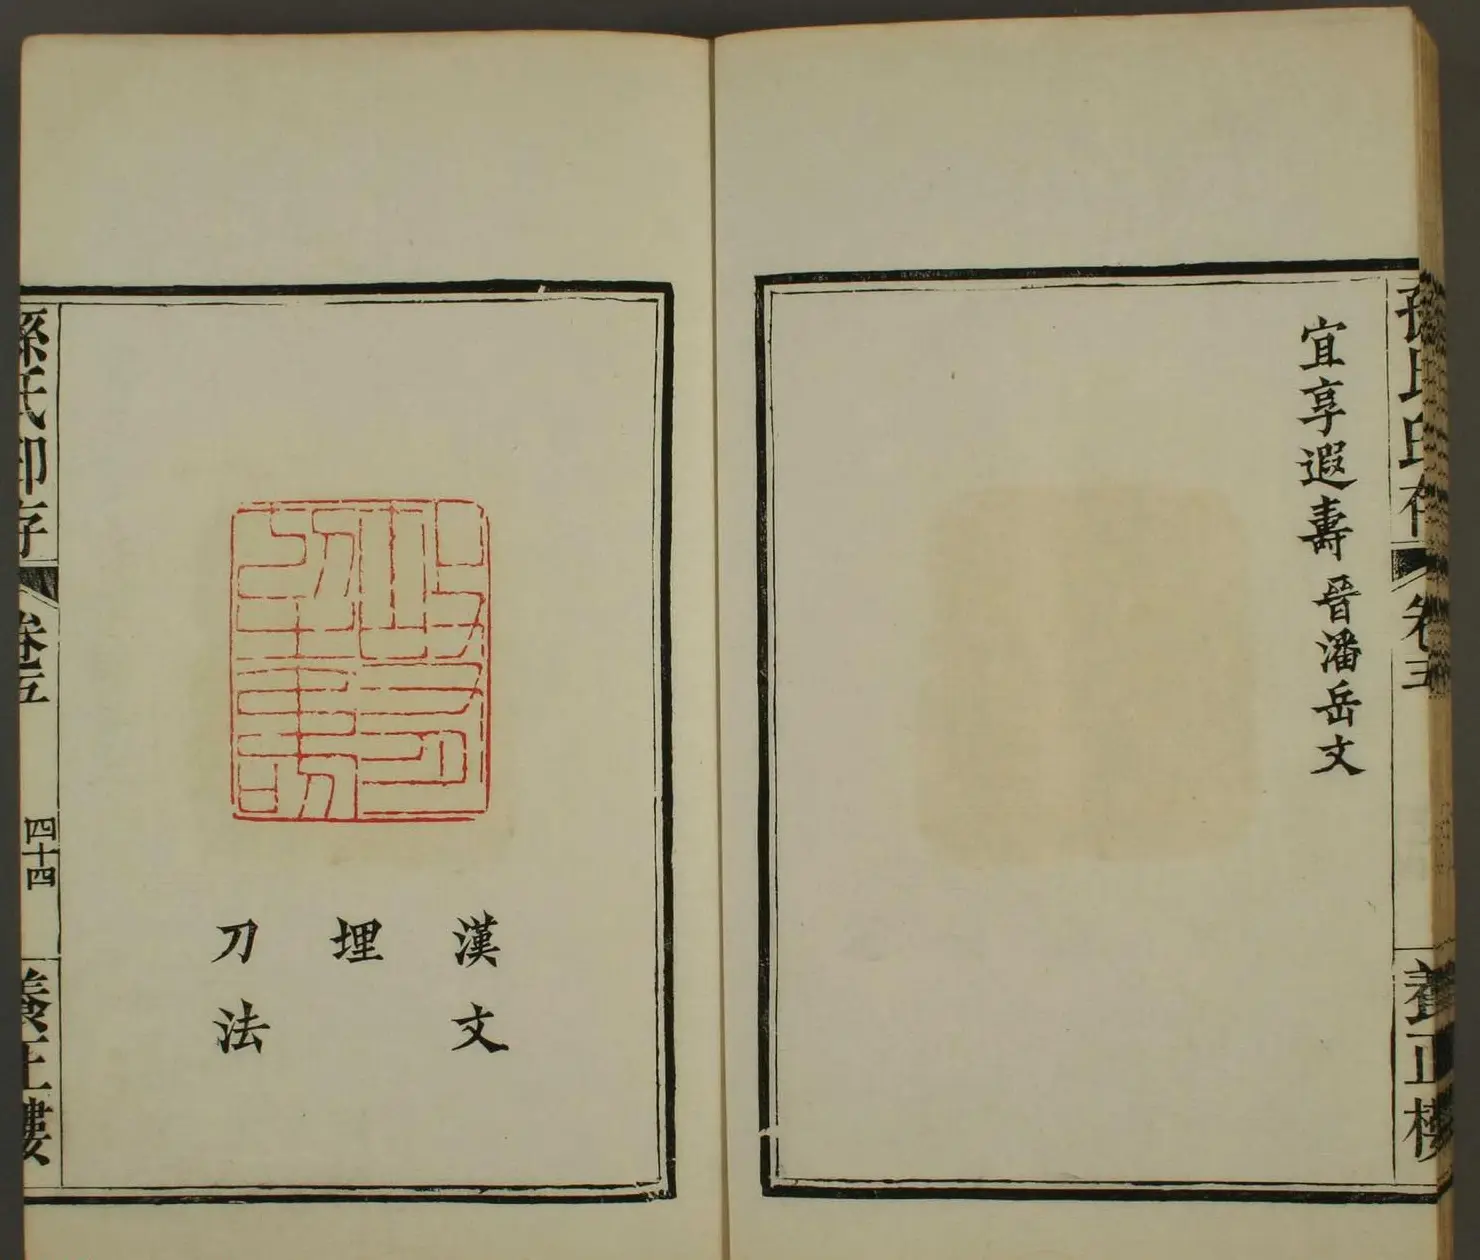 孫氏印存
卷五
養正樓
宜享遐壽 晉潘岳文
漢文
埋
刀法
孫氏印存
卷五
四十四
養正樓